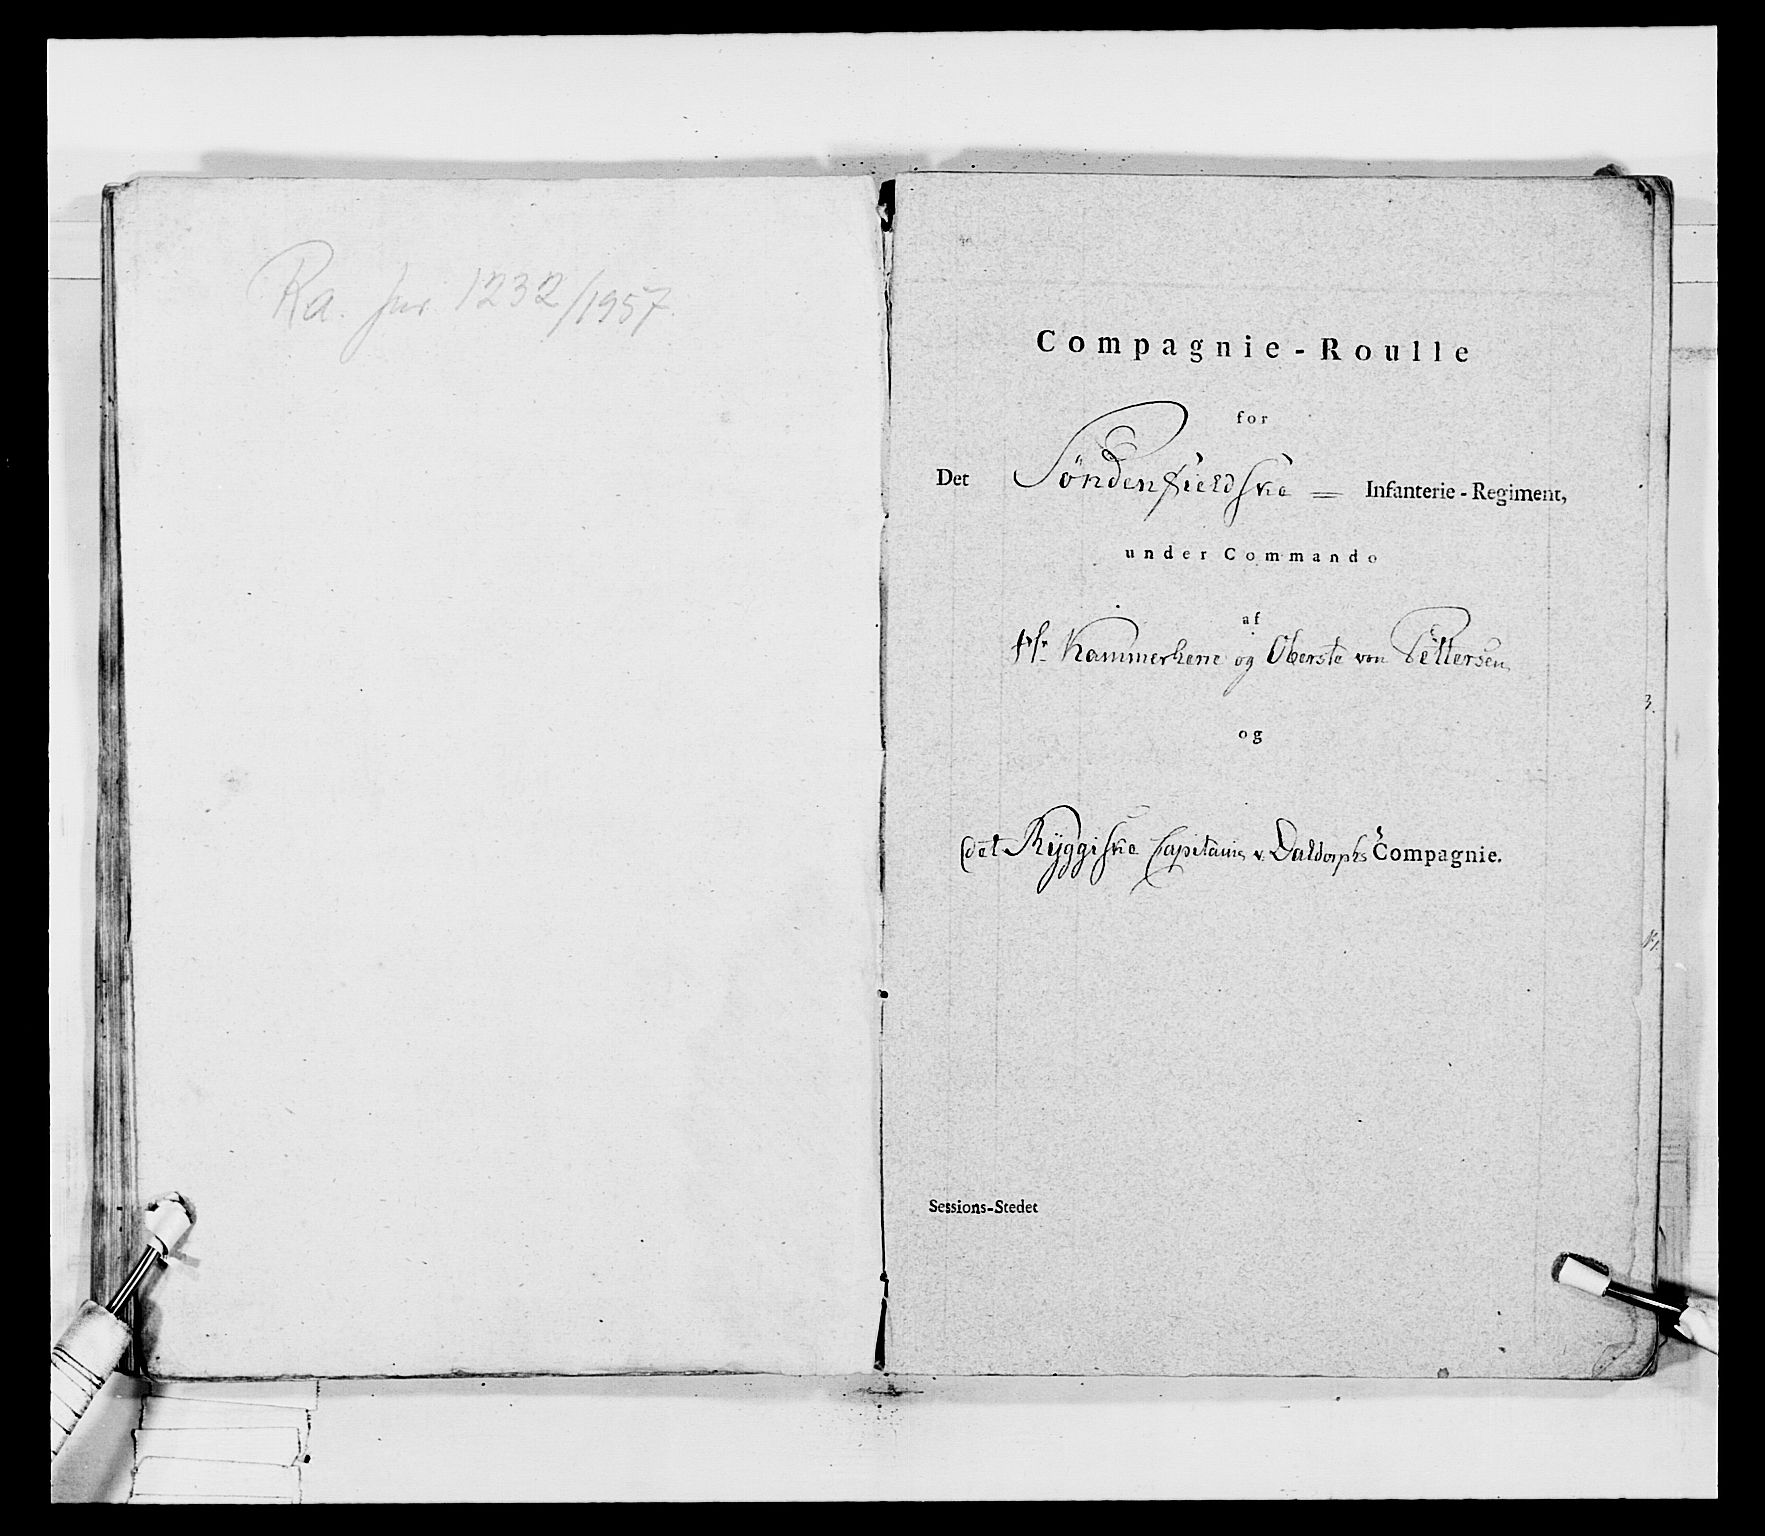 Ra. jnr. 1232/1957.
Compagnie-Roulle
for
Det Søndenfieldske = Infanterie-Regiment,
under Commando
af
Hr. Kammerherre og Oberste von Pettersen,
og
3.
det Ryggiske Capitain v. Daldorphs Compagnie.
Sessions-Stedet